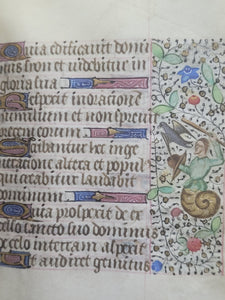 Quia edificauit domi
nus syon et uidebitur in
gloria sua
Respexit in oracione
humilium et non spreuit
precem eorum
Scribantur hec in ge
neracione altera et popul
qui creabitur laudabit
dominum
Quia prospexit de ex
celso sancto suo dominus
de celo in terram aspexit
Ut audiret gemitus